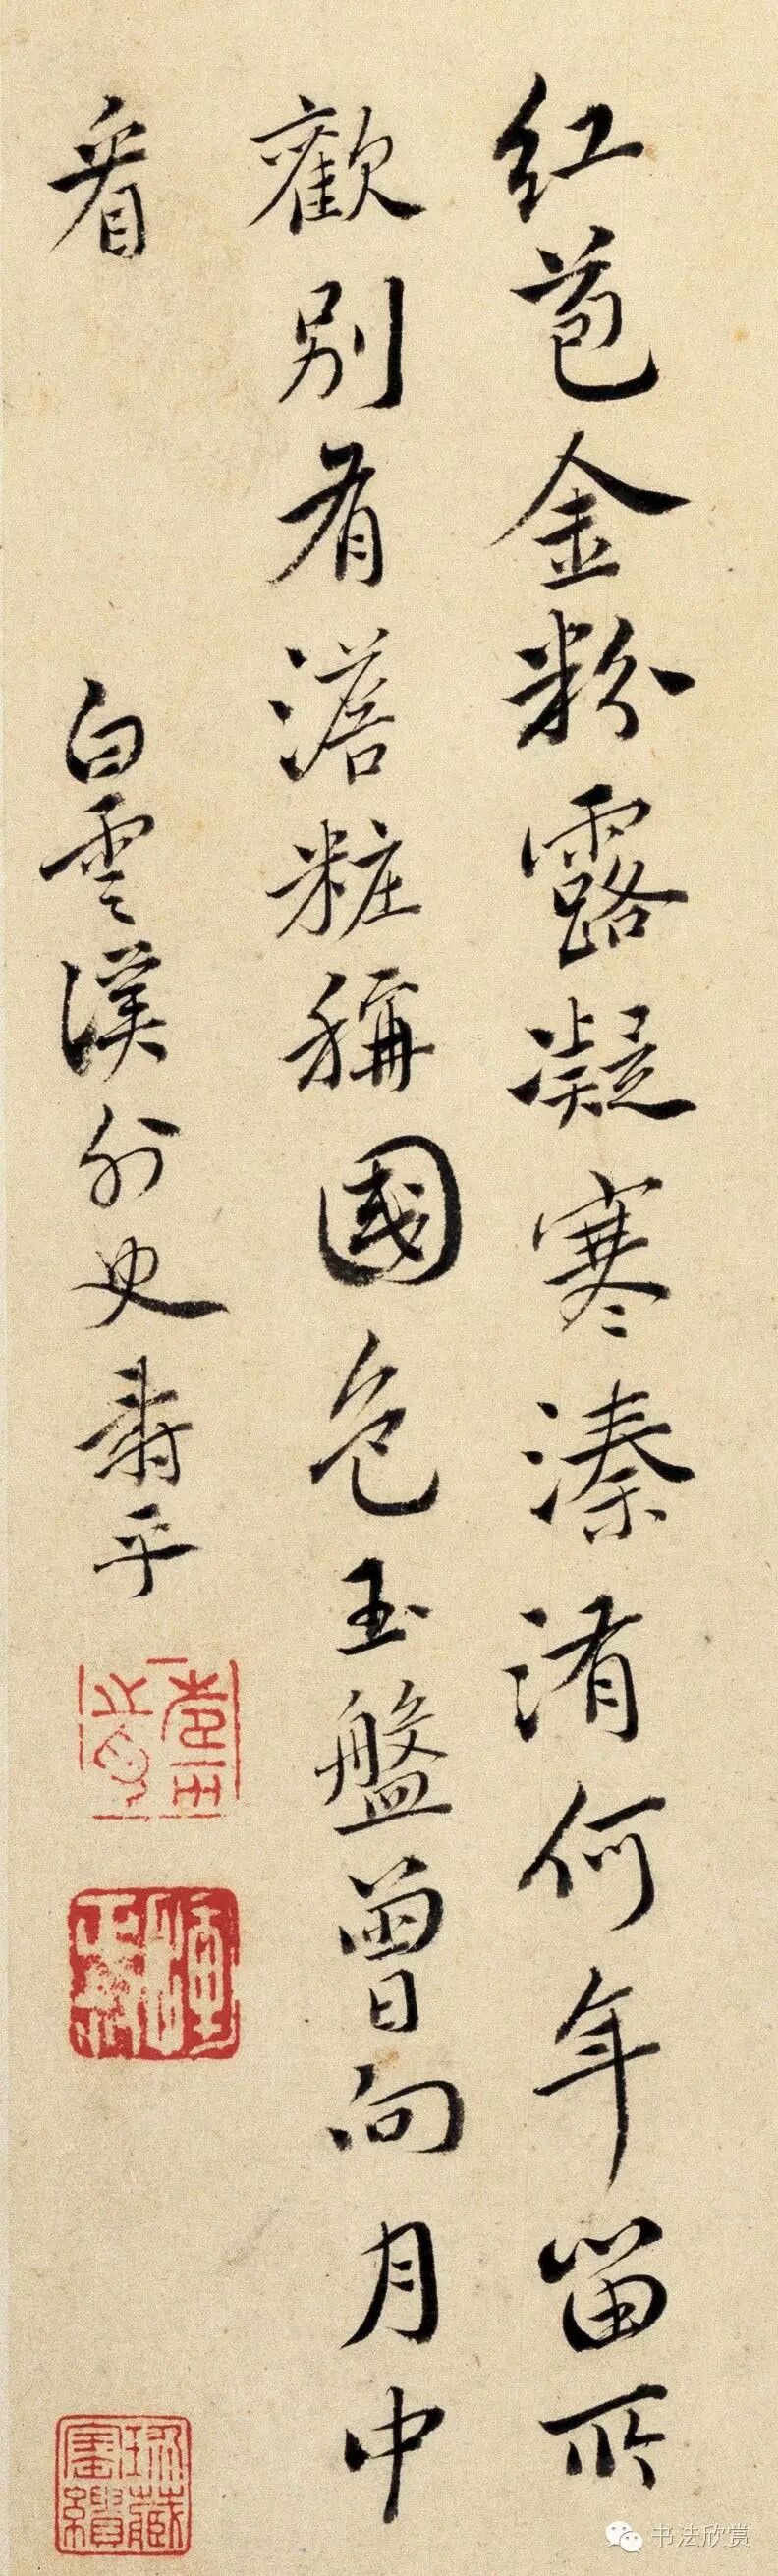 红苞金粉露凝寒溱洧何年留所
歡別有澹粧稱國色玉盤曾向月中
看
白雲溪外史壽平
書法欣赏